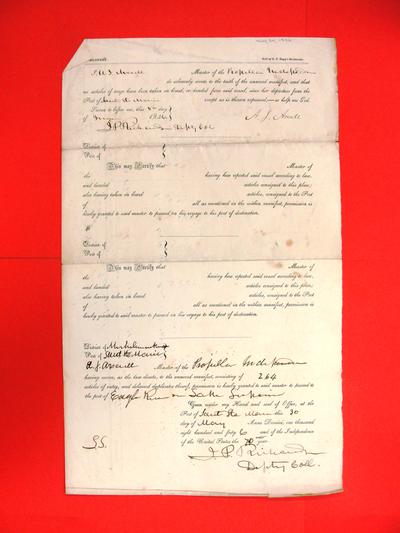 I, A J Averill Master of the Propeller Independence
do solemnly swear to the truth of the annexed manifest, and that
no articles of cargo have been taken on board, or landed from said vessel, since her departure from the
Port of except as is therein expressed:—so help me God.
Sworn to before me, this day
of May 1846
J. P. Richardson Depty Col
A. J. Averill
District of
Port of
This may Certify that Master of
the having here reported said vessel according to law,
and landed articles consigned to this place;
also having taken on board articles, consigned to the Port
of all as mentioned in the within manifest, permission is
hereby granted to said master to proceed on his voyage to his port of destination.
District of
Port of
This may Certify that Master of
the having here reported said vessel according to law,
and landed articles consigned to this place;
also having taken on board articles, consigned to the Port
of all as mentioned in the within manifest, permission is
hereby granted to said master to proceed on his voyage to his port of destination.
District of Michilimackinac
Port of Saut Ste Marie
A J Averill Master of the Propeller Independence
having sworn, as the law directs, to the annexed manifest, consisting of 264
articles of entry, and delivered duplicates thereof, permission is hereby granted to said master to proceed to
the port of Eagle River on Lake Superior
Given under my Hand and Seal of Office, at the
Port of Saut Ste Marie this 30
day of May Anno Domini, one thousand
eight hundred and forty 6 and of the Independence
of the United States the 70 year.
J. P. Richardson
Depty Coll.